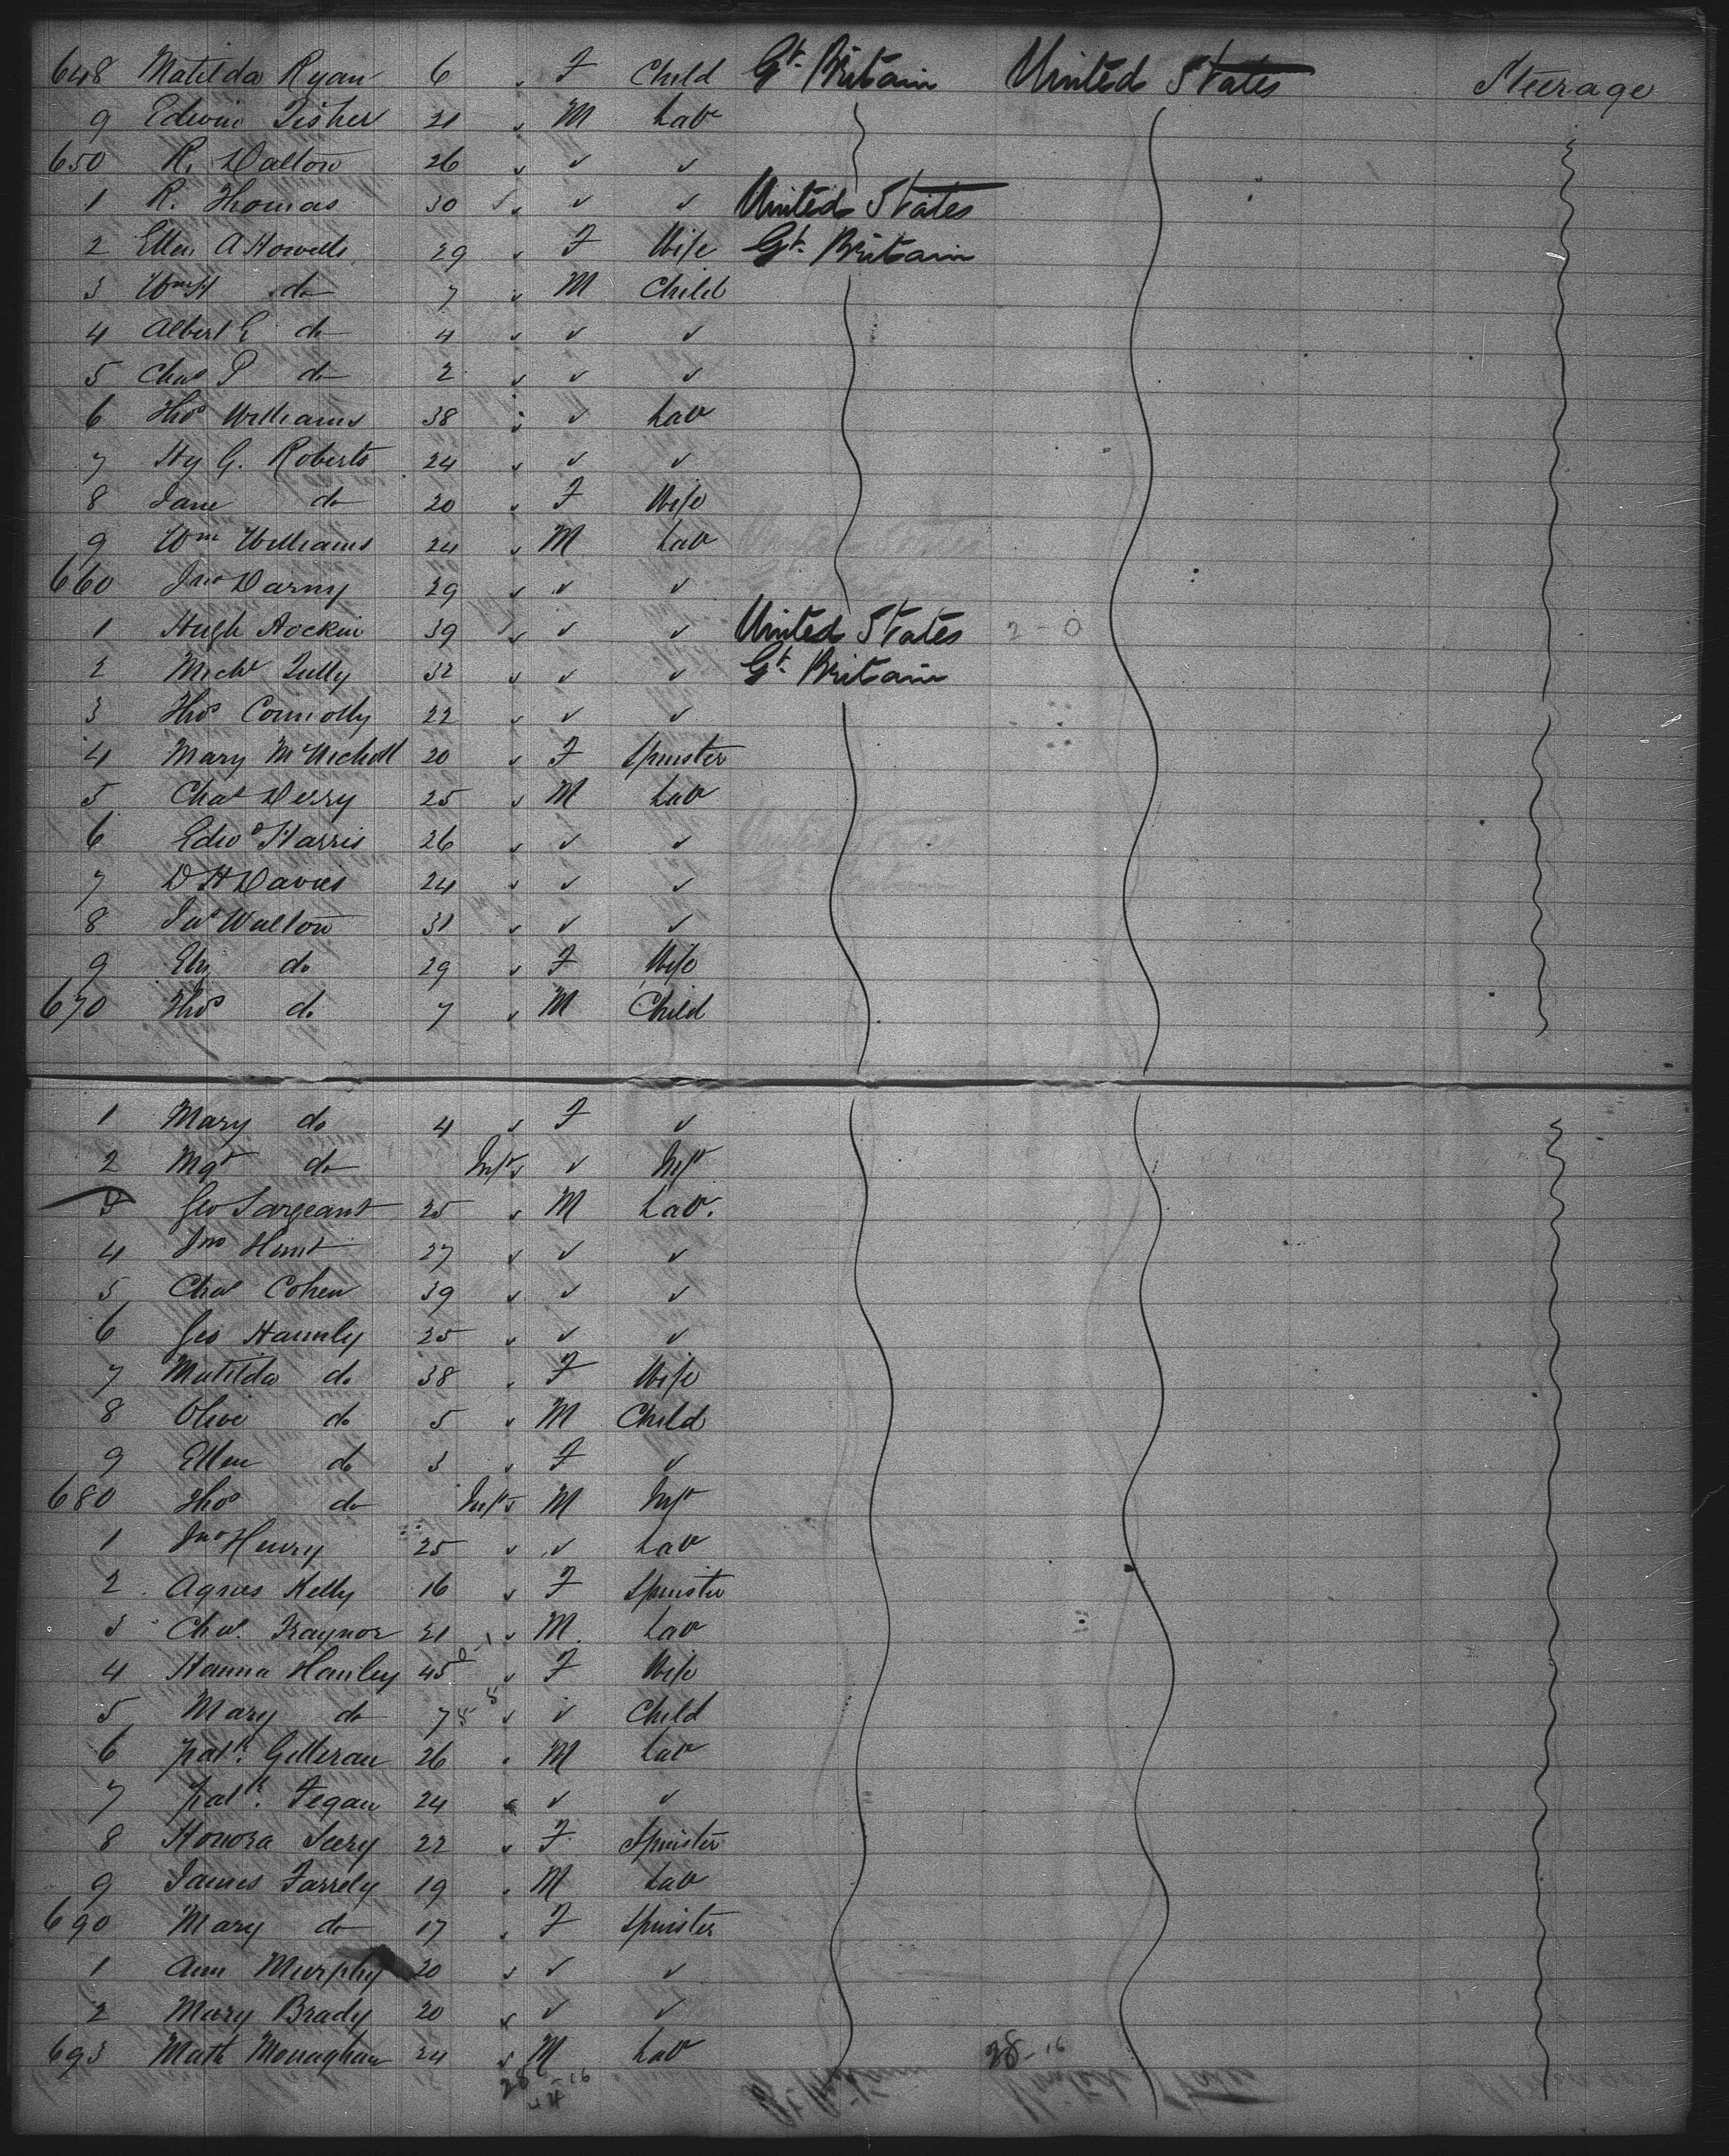 648 Matilda Ryan 6 " F Child Gt. Britain United States Steerage
9 Edwin Fisher 21 " M Lab
650 R. Dalton 26 " " "
1 R. Thomas 30 " " " United States
2 Ellen A Howells 29 " F Wife Gt. Britain
3 Wm H do 7 " M Child
4 Albert E do 4 " " "
5 Chas P do 2 " " "
6 Thos Williams 38 " " Lab
7 Hy G. Roberts 24 " " "
8 Jane do 20 " F Wife
9 Wm Williams 24 " M Lab
660 Jno Darny 29 " " "
1 Hugh Hockin 39 " " " United States 2-0
2 Michl Tully 32 " " " Gt. Britain
3 Thos Connolly 22 " " "
4 Mary McNicholl 20 " F Spinster
5 Chas Derry 25 " M Lab
6 Edwd Harris 26 " " "
7 D H Davies 24 " " "
8 Jas Walton 31 " " "
9 Eliz do 29 " F Wife
670 Thos do 7 " M Child
1 Mary do 4 " F "
2 Mgt do Inft " " Inft
3 Geo Sargeant 25 " M Lab.
4 Jno Hunt 27 " " "
5 Chas Cohen 39 " " "
6 Geo Hamnly 25 " " "
7 Matilda do 38 " F Wife
8 Olive do 5 " M Child
9 Ellen do 3 " F "
680 Thos do Inft " M Inft
1 Jno Henry 25 " " Lab
2 Agnes Kelly 16 " F Spinster
3 Chas. Traynor 21 " M Lab
4 Hanna Hanley 45 " F Wife
5 Mary do 7 " " Child
6 Patk. Gilleran 26 " M Lab
7 Patk. Fegan 24 " " "
8 Honora Seery 22 " F Spinster
9 James Farrely 19 " M Lab
690 Mary do 17 " F Spinster
1 Ann Murphy 20 " " "
2 Mary Brady 20 " " "
693 Math Monaghan 24 " M Lab 28-16
28-16